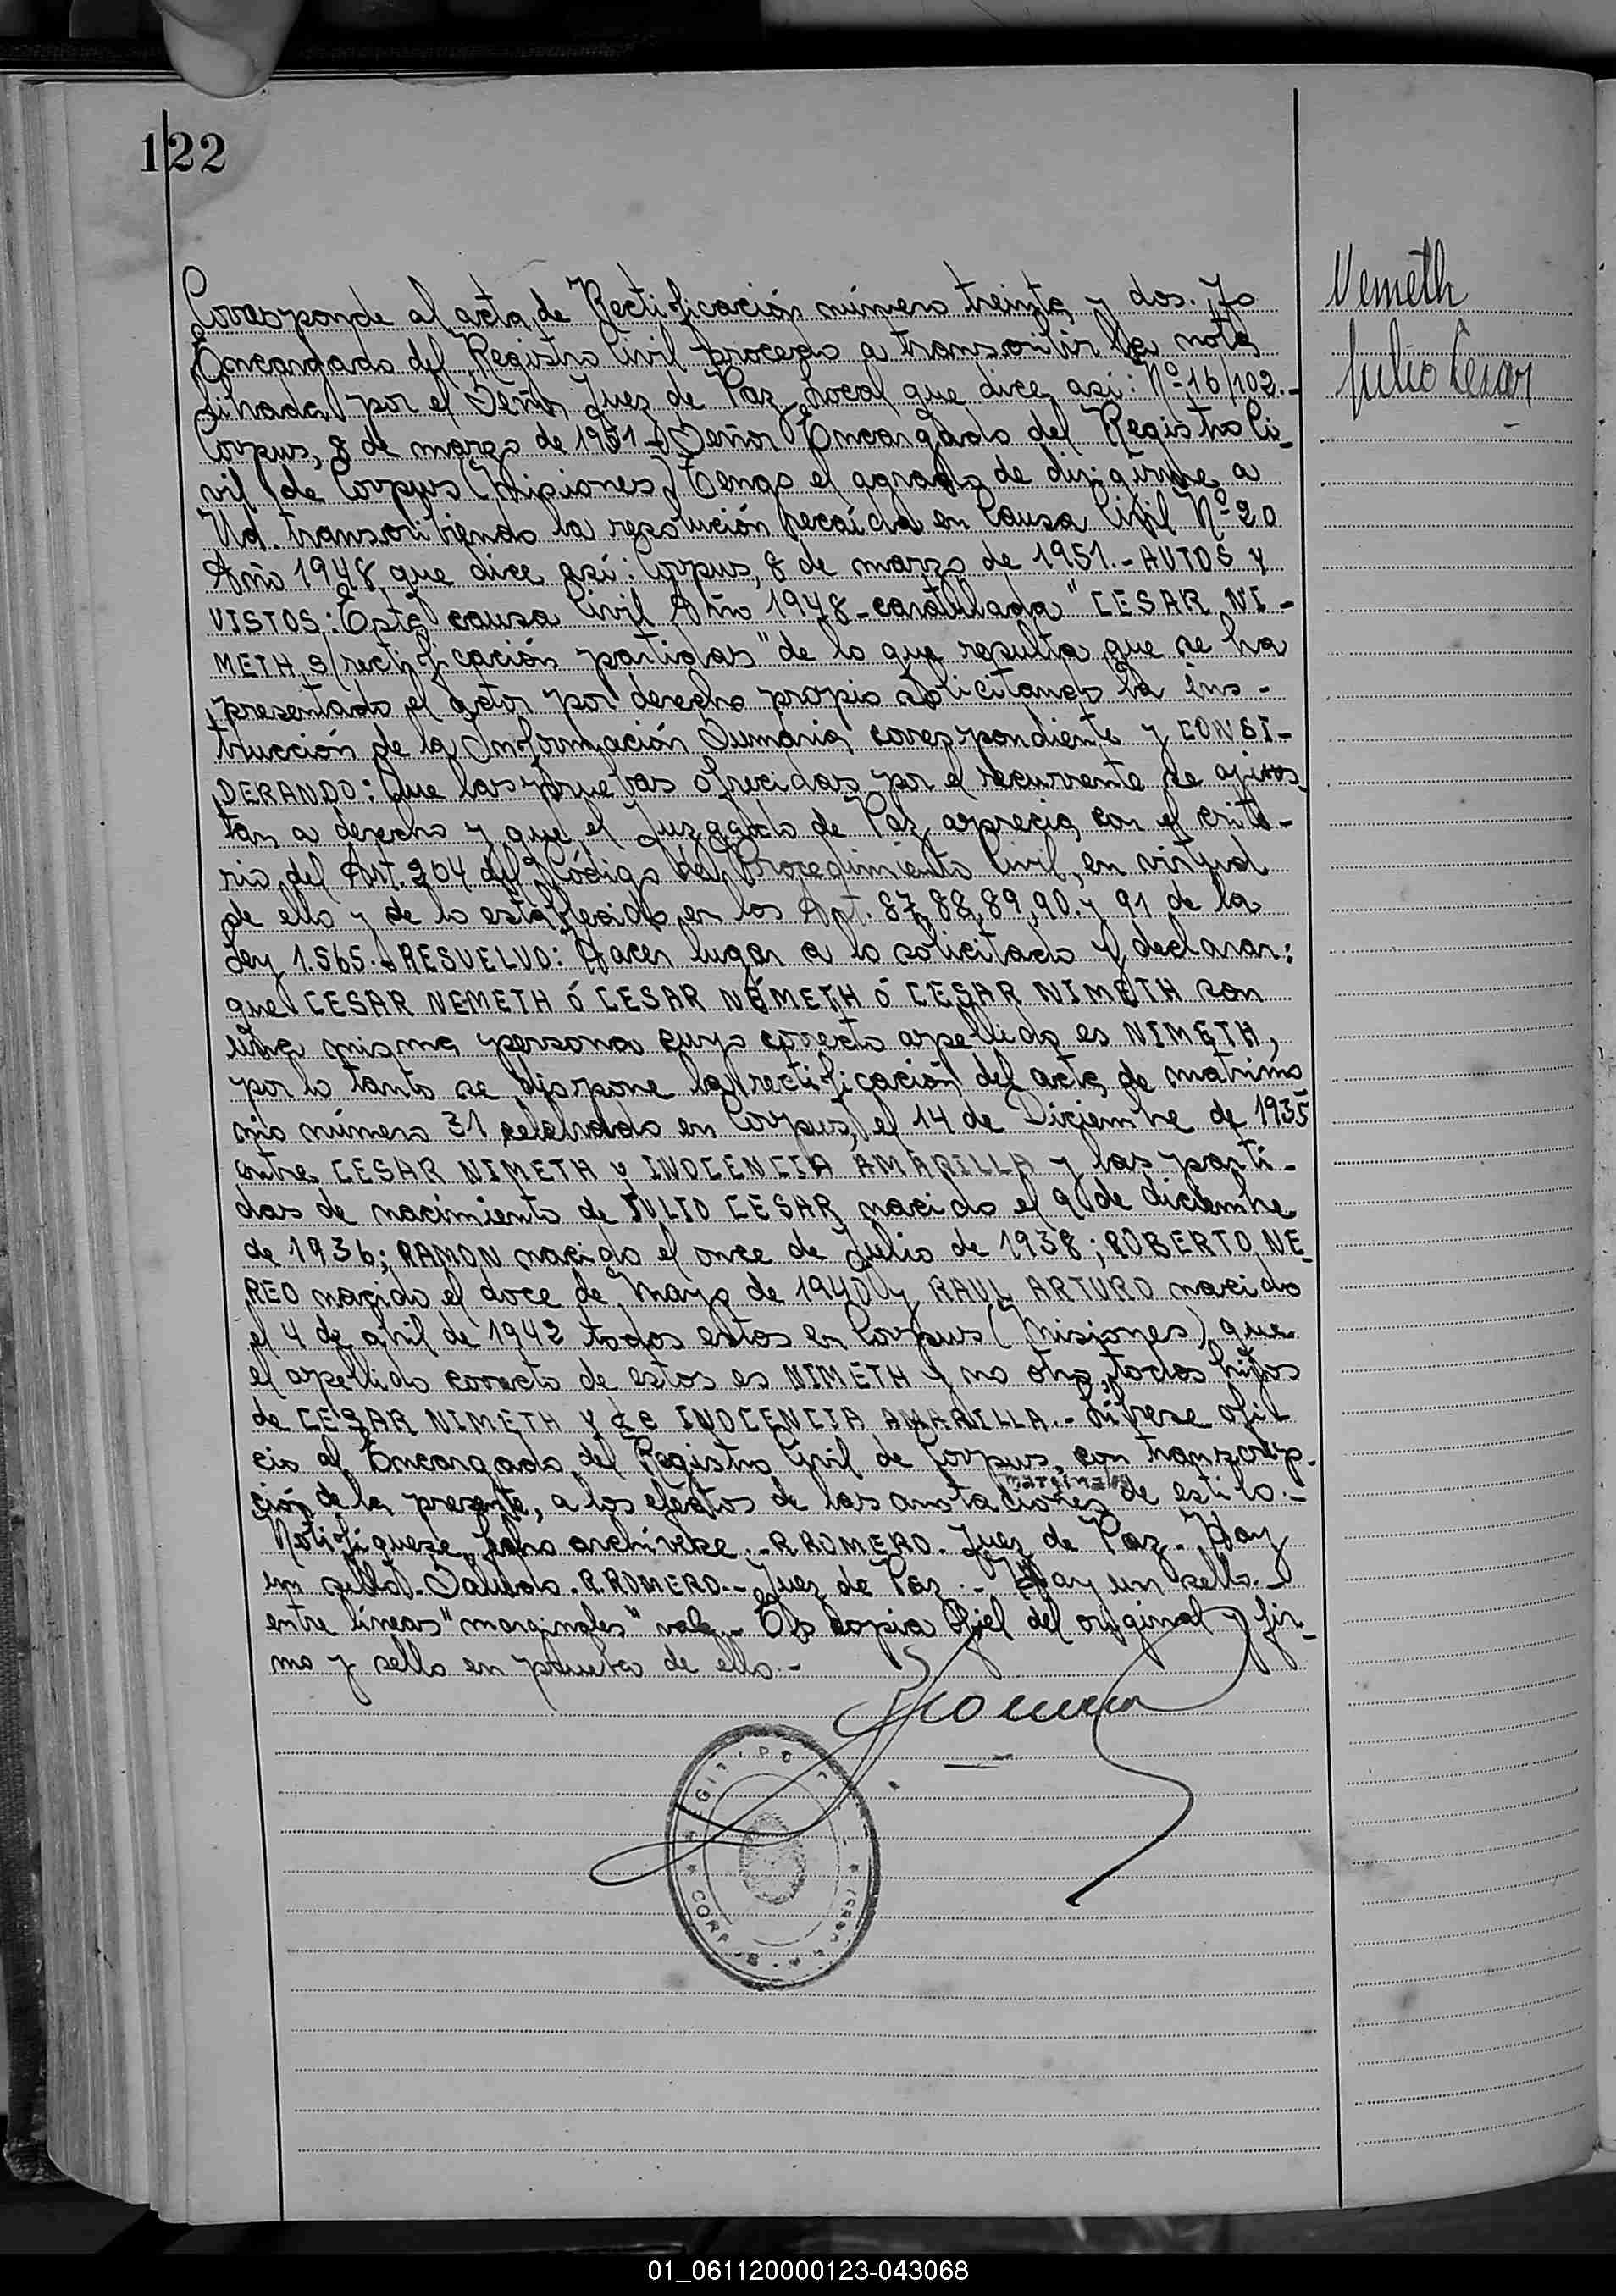 122
Nemeth
Julio Cesar
Corresponde al acta de Rectificación número treinta y dos. Yo
Encargado del Registro Civil procedo a transcribir la nota
librada por el Señor Juez de Paz Local que dice asi: Nº 16/102.-
Corpus, 8 de marzo de 1951.- Señor Encargado del Registro Ci-
vil de Corpus (Misiones) Tengo el agrado de dirigirme a
Ud. transcribiendo la resolución recaída en Causa Civil Nº 20
Año 1948 que dice así: Corpus, 8 de marzo de 1951.- AUTOS y
VISTOS: Esta causa Civil Año 1948 - caratulada "CESAR NI-
METH s/rectificación partidas" de lo que resulta que se ha
presentado el actor por derecho propio solicitando la ins-
trucción de la Información Sumaria correspondiente y CONSI-
DERANDO: Que las pruebas ofrecidas por el recurrente se ajus
tan a derecho y que el Juzgado de Paz aprecia con el crite-
rio del Art. 204 del Código del Procedimiento Civil, en virtud
de ello y de lo establecido en los Art. 87, 88, 89, 90. y 91 de la
Ley 1.565.- RESUELVO: Hacer lugar a lo solicitado y declarar:
que CESAR NEMETH ó CESAR NÉMETH ó CESAR NIMETH son
una misma persona cuyo correcto apellido es NIMETH,
por lo tanto se dispone la rectificación del acta de matrimo
nio número 31 celebrado en Corpus, el 14 de Diciembre de 1935
entre CESAR NIMETH y INOCENCIA AMARILLA y las parti-
das de nacimiento de JULIO CESAR nacido el 9 de diciembre
de 1936; RAMON nacido el once de Julio de 1938; ROBERTO NE-
REO nacido el doce de Mayo de 1940 y RAUL ARTURO nacido
el 4 de abril de 1942 todos estos en Corpus (Misiones) que
el apellido correcto de estos es NIMETH y no otro, todos hijos
de CESAR NIMETH y de INOCENCIA AMARILLA.- Líbrese ofi
cio al Encargado del Registro Civil de Corpus, con transcrip-
marginales
ción de la presente, a los efectos de las anotaciones de estilo.-
Notifiquese, archivese.- R ROMERO. Juez de Paz.- Hay
un sello. Saludo. R. ROMERO.- Juez de Paz.- Hay un sello.-
entre líneas "marginales" vale.- Es copia fiel del original y fir-
mo y sello en prueba de ello.-
CORPUS
01_061120000123-043068